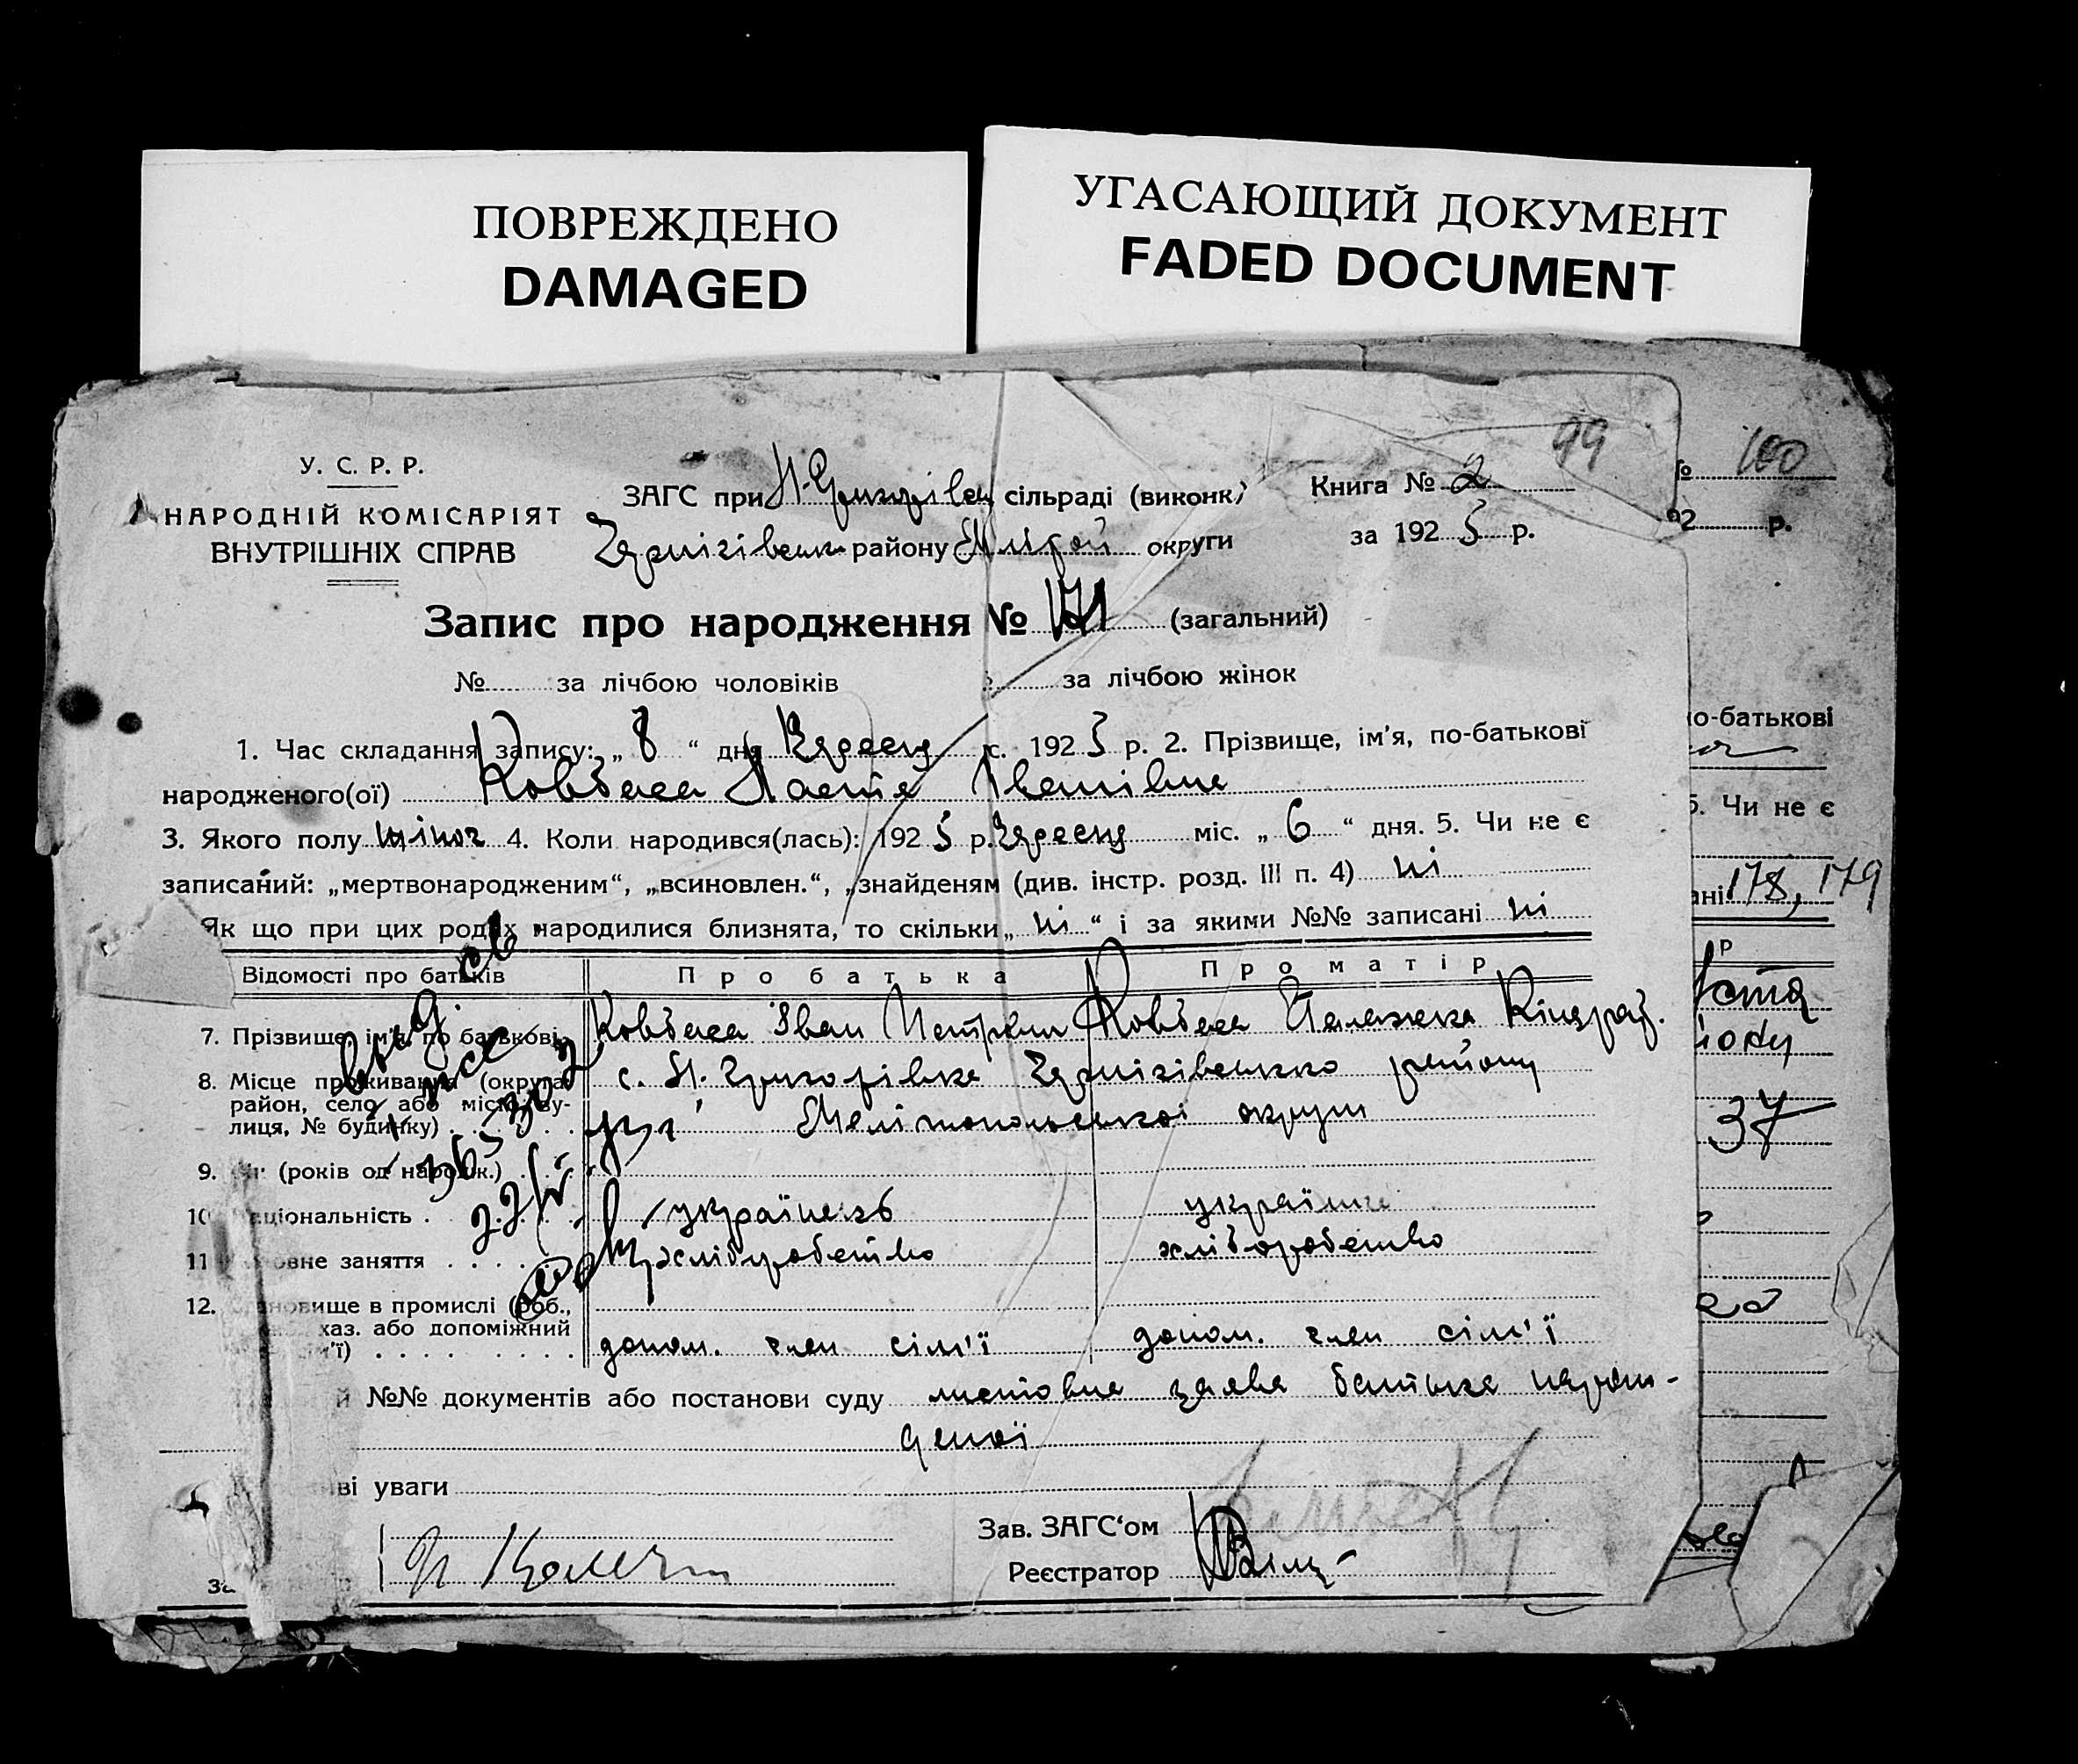 ПОВРЕЖДЕНО
DAMAGED
УГАСАЮЩИЙ ДОКУМЕНТ
FADED DOCUMENT
99
100
У. С. Р. Р.
НАРОДНІЙ КОМІСАРІЯТ
ВНУТРІШНІХ СПРАВ
ЗАГС при Н-Григорівск сільраді (виконк)
Чернігівськ району округи
Книга № 2
за 1925 р.
№
92 р.
Запис про народження № 121 (загальний)
№ за лічбою чоловіків за лічбою жінок
1. Час складання запису: „ 8 “ дня Вересня с. 1925 р. 2. Прізвище, ім'я, по-батькові
народженого(ої) Ковбаса Настя Іванівна
3. Якого полу жіноч 4. Коли народився(лась): 1925 р. Вересня міс. „ 6 “ дня. 5. Чи не є
записаний: „мертвонародженим“, „всиновлен.“, „знайденям (див. інстр. розд. III п. 4) ні
Як що при цих родах народилися близнята, то скільки „ ні “ і за якими №№ записані ні
о-батькові
5. Чи не є
ані 178, 179
Відомості про батьків Про батька Про матір
р
7. Прізвище, ім'я, по батькові Ковбаса Іван Ковбаса Палажка Кіндрат.
8. Місце проживання (округа, район, село або місто, ву-
лиця, № будинку) с. Н. Григорівка Чернігівського району
Мелітопольської округи
37
9. (років од народж.)
10 ціональність українець українка
11 овне заняття хліборобство хліборобство
12. новище в промислі (роб.,
хаз. або допоміжний
м'ї) допом. член сім'ї допом. член сім'ї
й №№ документів або постанови суду листовна заява батька народж-
деної
ві уваги
Зав. ЗАГС‘ом
Реєстратор
за